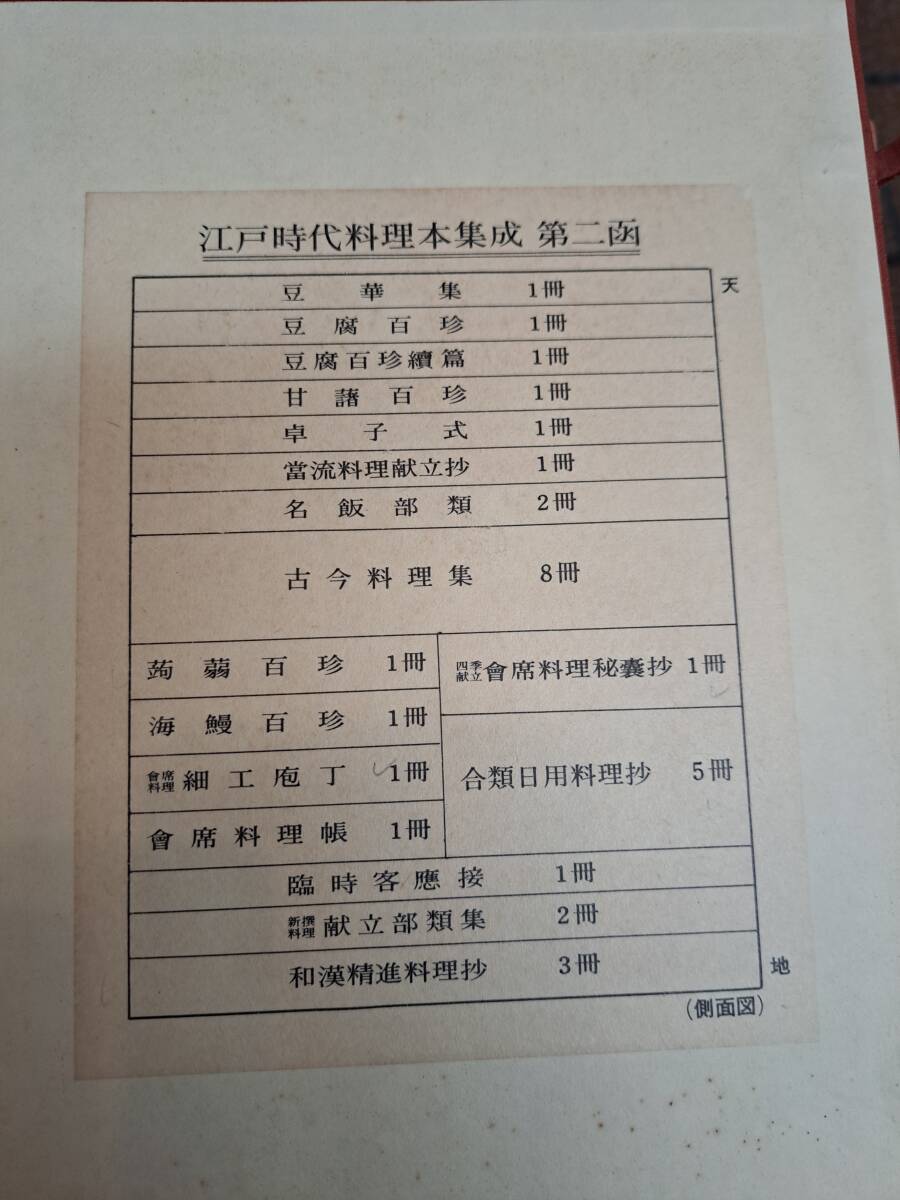 江戸時代料理本集成 第二函
天
豆華集 1冊
豆腐百珍 1冊
豆腐百珍續篇 1冊
甘藷百珍 1冊
卓子式 1冊
當流料理献立抄 1冊
名飯部類 2冊
古今料理集 8冊
蒟蒻百珍 1冊
海鰻百珍 1冊
會席料理 細工庖丁 1冊
會席料理帳 1冊
四季献立 會席料理秘嚢抄 1冊
合類日用料理抄 5冊
臨時客應接 1冊
新撰料理 献立部類集 2冊
和漢精進料理抄 3冊
地
(側面図)